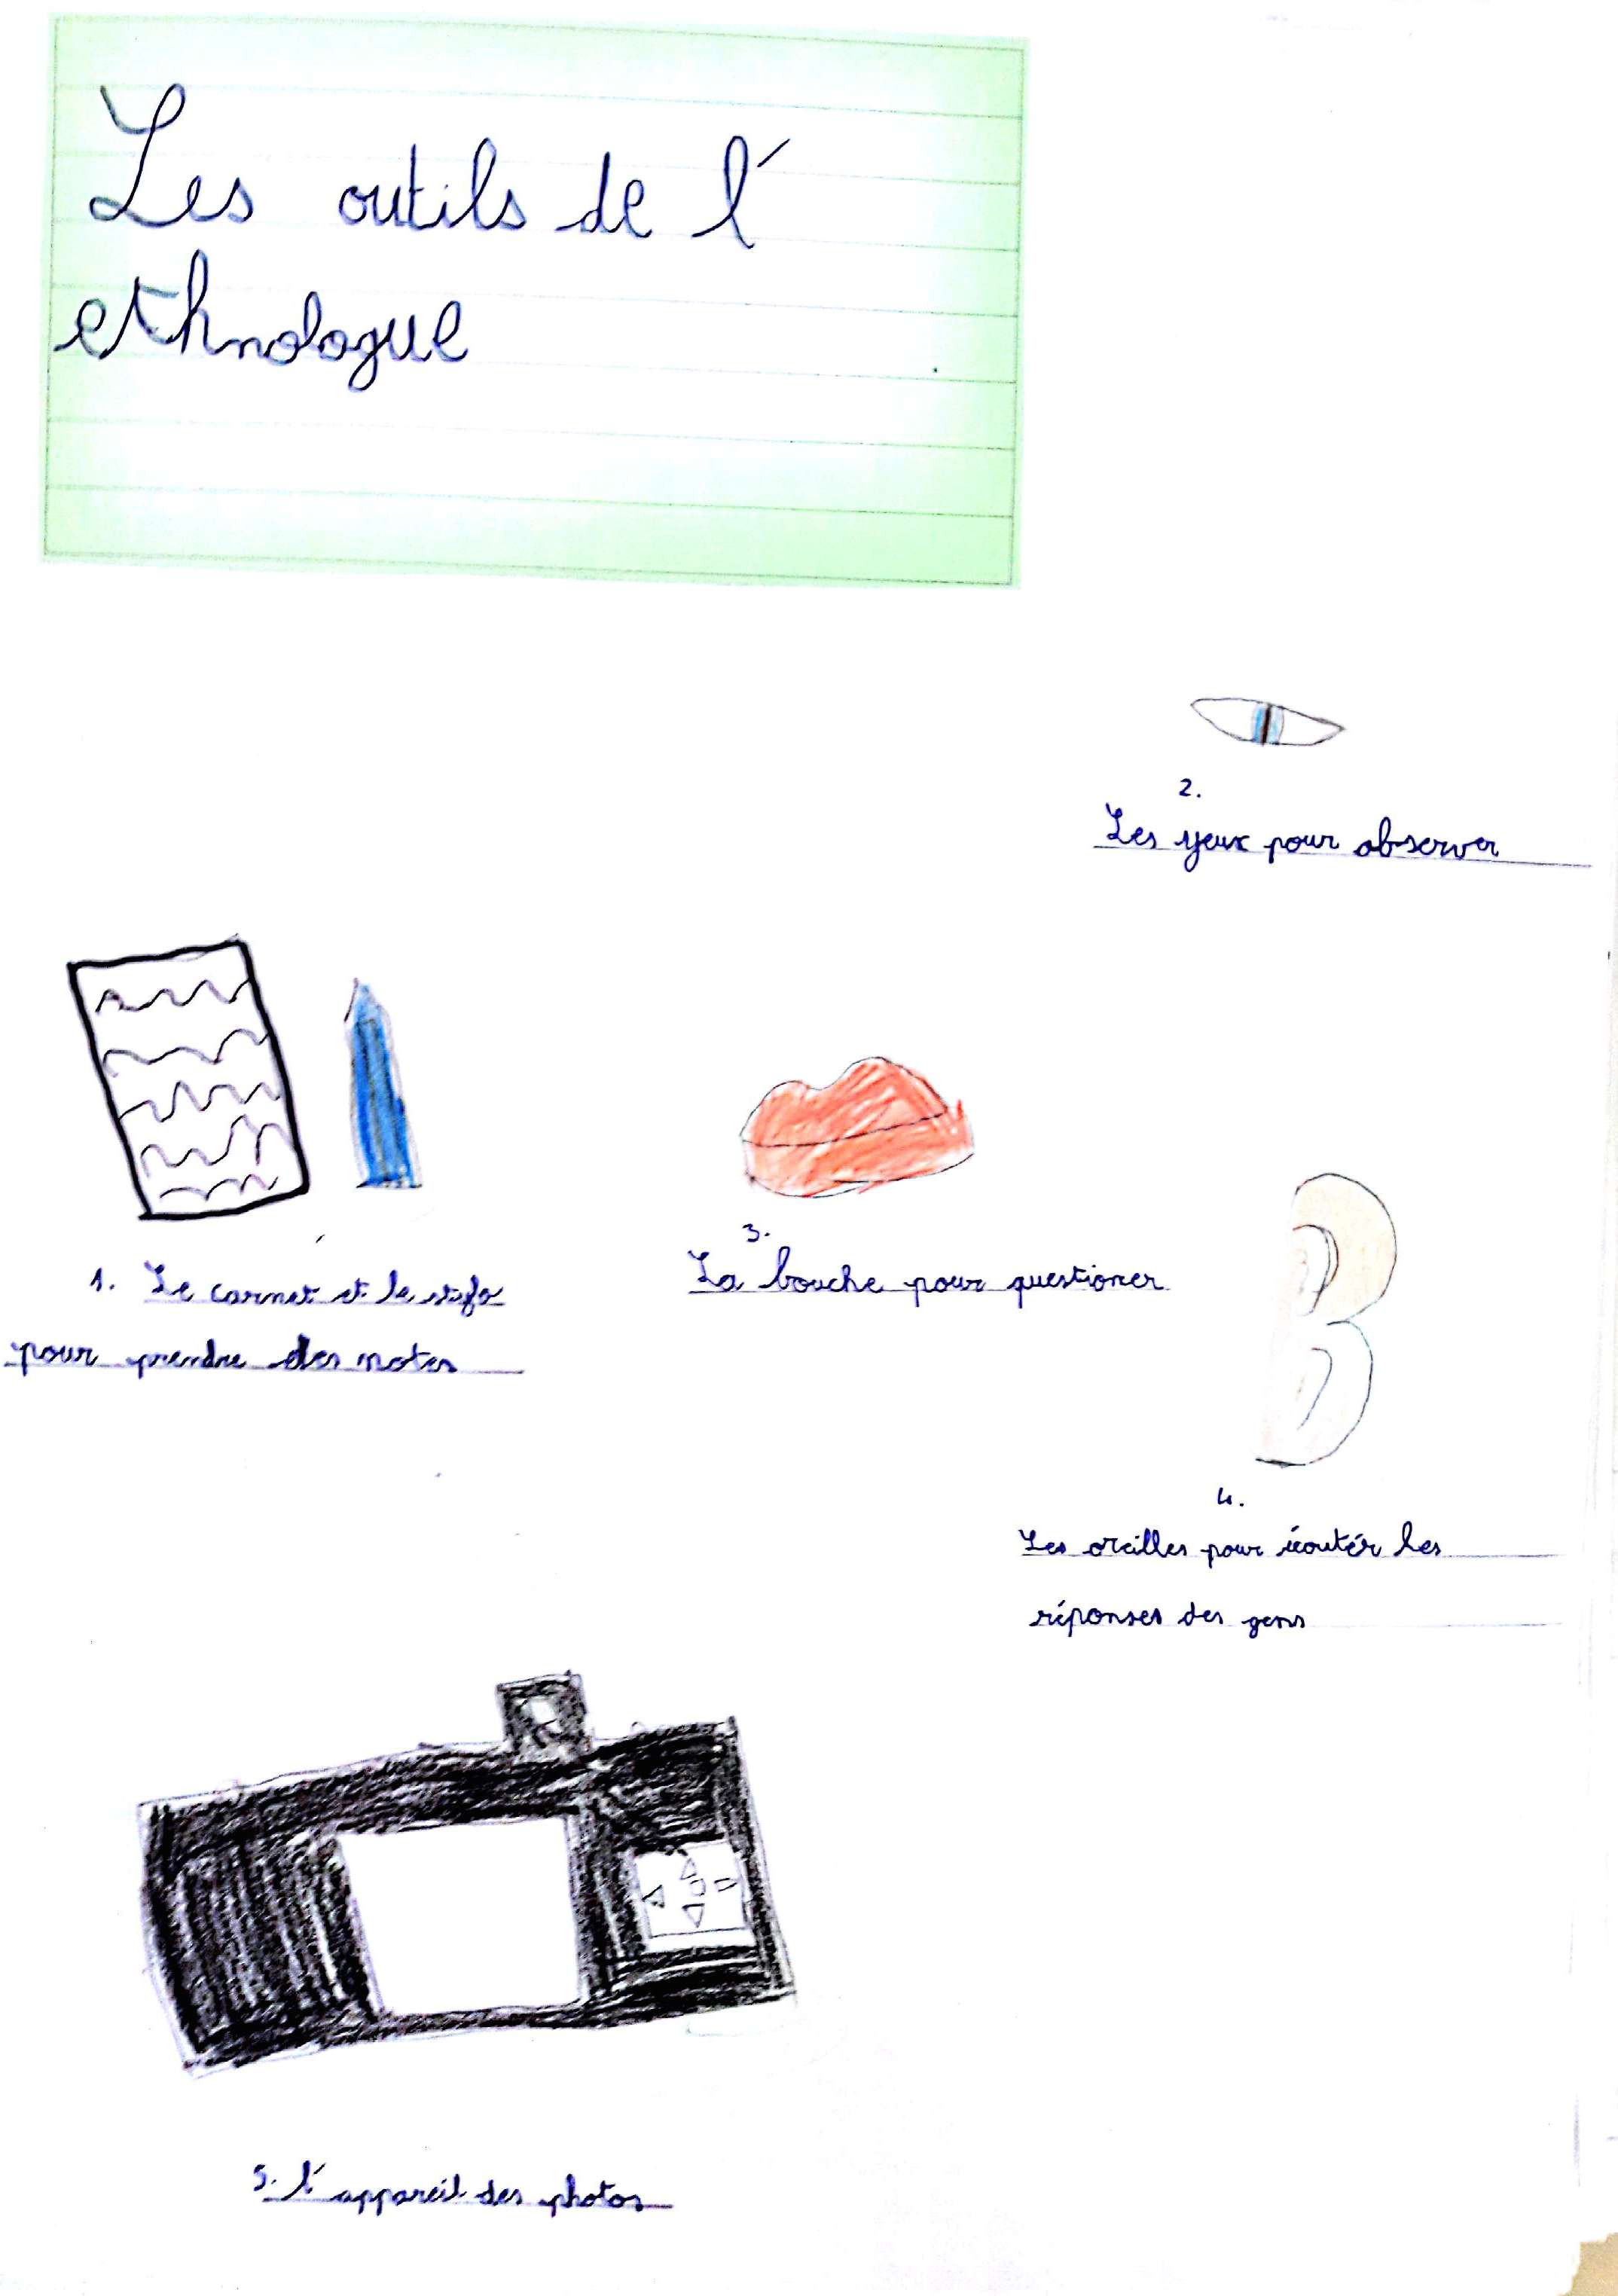 Les outils de l'
ethnologue
2.
Les yeux pour observer
1. Le carnet et le stylo
pour prendre des notes
3.
La bouche pour questioner
4.
Les oreilles pour écoutér les
réponses des gens
5. l'appareil des photos